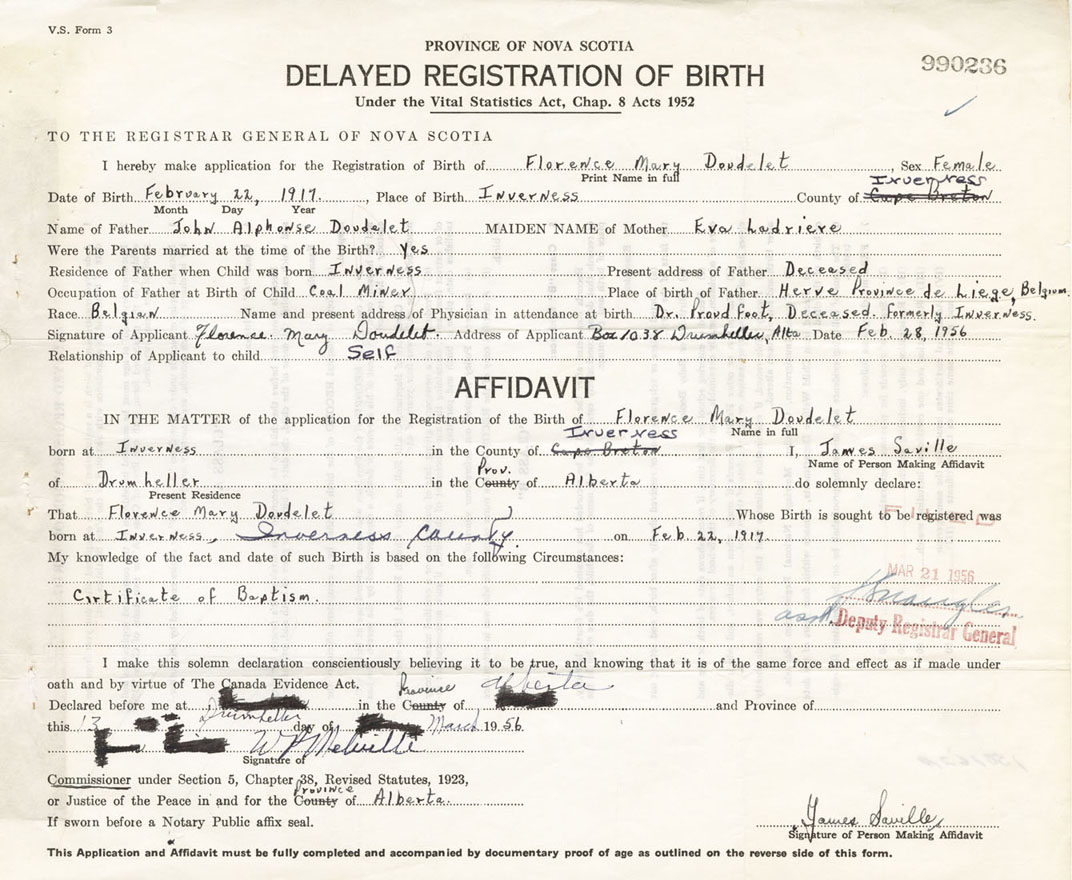 V.S. Form 3
PROVINCE OF NOVA SCOTIA
990236
DELAYED REGISTRATION OF BIRTH
Under the Vital Statistics Act, Chap. 8 Acts 1952
TO THE REGISTRAR GENERAL OF NOVA SCOTIA
I hereby make application for the Registration of Birth of Florence Mary Doudelet, Sex Female
Print Name in full
Inverness
Date of Birth February 22, 1917., Place of Birth Inverness County of Cape Breton
Month Day Year
Name of Father John Alphonse Doudelet. MAIDEN NAME of Mother Eva Ladriere
Were the Parents married at the time of the Birth? Yes
Residence of Father when Child was born Inverness Present address of Father Deceased
Occupation of Father at Birth of Child Coal Miner Place of birth of Father Herve Province de Liege, Belgium.
Race Belgian Name and present address of Physician in attendance at birth Dr. Proudfoot, Deceased. formerly Inverness.
Signature of Applicant Florence Mary Doudelet. Address of Applicant Box 1038 Drumheller, Alta Date Feb. 28, 1956
Relationship of Applicant to child Self
AFFIDAVIT
IN THE MATTER of the application for the Registration of the Birth of Florence Mary Doudelet
Inverness Name in full
born at Inverness in the County of Cape Breton I, James Saville
Prov. Name of Person Making Affidavit
of Drumheller in the County of Alberta do solemnly declare:
Present Residence
That Florence Mary Doudelet Whose Birth is sought to be registered was
born at Inverness, Inverness County on Feb. 22, 1917.
My knowledge of the fact and date of such Birth is based on the following Circumstances:
MAR 21 1956
Certificate of Baptism.
asst. Deputy Registrar General
I make this solemn declaration conscientiously believing it to be true, and knowing that it is of the same force and effect as if made under
oath and by virtue of The Canada Evidence Act. Province Alberta
Declared before me at in the County of and Province of
this 13 Drumheller day of March 1956
W Melville
Signature of
Commissioner under Section 5, Chapter 38, Revised Statutes, 1923,
Province
or Justice of the Peace in and for the County of Alberta.
If sworn before a Notary Public affix seal.
James Saville
Signature of Person Making Affidavit
This Application and Affidavit must be fully completed and accompanied by documentary proof of age as outlined on the reverse side of this form.